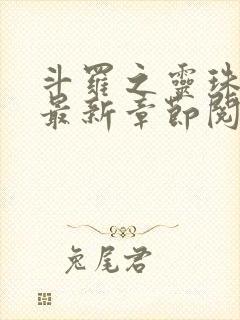 斗羅之靈珠
最新章節閱
兔尾君